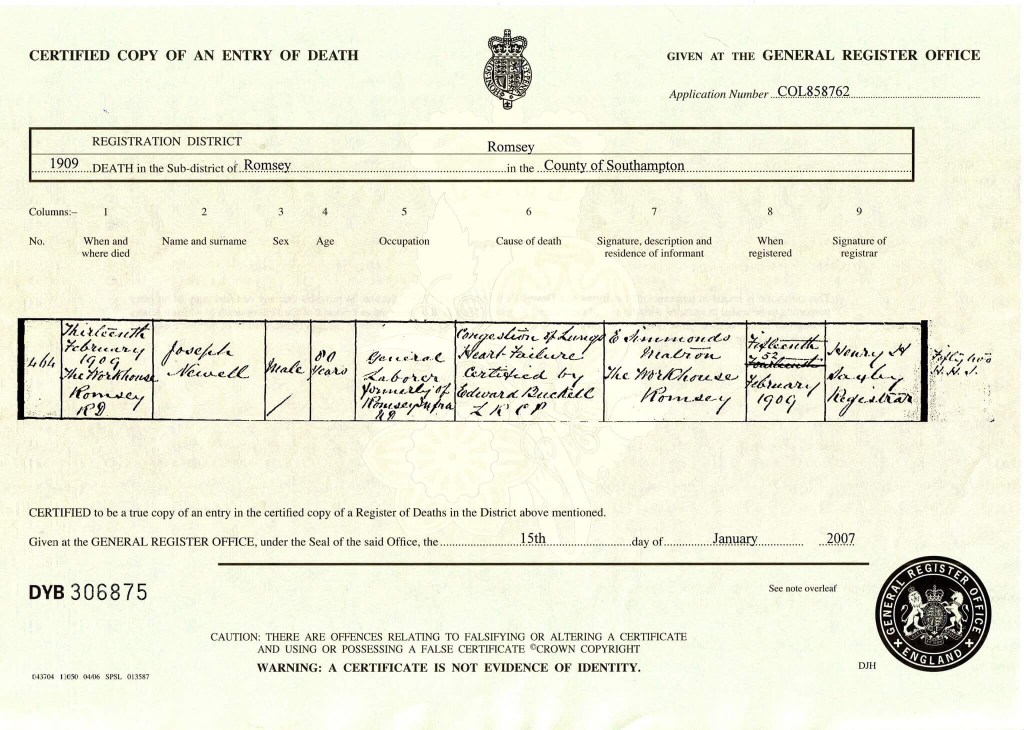 CERTIFIED COPY OF AN ENTRY OF DEATH
GIVEN AT THE GENERAL REGISTER OFFICE
Application Number COL858762
REGISTRATION DISTRICT Romsey
1909 DEATH in the Sub-district of Romsey in the County of Southampton
Columns:– 1 2 3 4 5 6 7 8 9
No.
When and
where died
Name and surname
Sex
Age
Occupation
Cause of death
Signature, description and
residence of informant
When
registered
Signature of
registrar
464
Thirteenth
February
1909
The Workhouse
Romsey
RD
Joseph
Newell
Male
80
Years
General
Laborer
formerly of
Romsey Infra
RD
Congestion of Lungs
Heart Failure
Certified by
Edward Buckell
L R C P
E Simmonds
Matron
The Workhouse
Romsey
Fifteenth
52
February
1909
Henry H
Saxby
Registrar
Fifty two
H.H.S.
CERTIFIED to be a true copy of an entry in the certified copy of a Register of Deaths in the District above mentioned.
Given at the GENERAL REGISTER OFFICE, under the Seal of the said Office, the 15th day of January 2007
DYB 306875
See note overleaf
GENERAL REGISTER OFFICE
ENGLAND
CAUTION: THERE ARE OFFENCES RELATING TO FALSIFYING OR ALTERING A CERTIFICATE
AND USING OR POSSESSING A FALSE CERTIFICATE ©CROWN COPYRIGHT
WARNING: A CERTIFICATE IS NOT EVIDENCE OF IDENTITY.
DJH
043704 11050 04/06 SPSL 013587